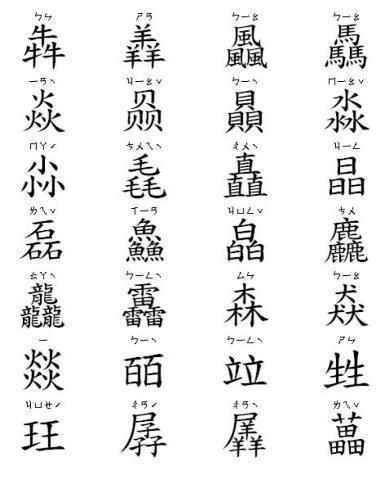 ㄅㄣ ㄕㄢ ㄅㄧㄠ ㄅㄧㄠ
犇 羴 飍 驫
ㄧㄢˋ ㄐㄧㄠˇ ㄅㄧˋ ㄇㄧㄠˇ
焱 赑 贔 淼
ㄇㄚˊ ㄘㄨㄟˋ ㄔㄨˋ ㄐㄧㄥ
尛 毳 矗 晶
ㄌㄟˇ ㄒㄧㄢ ㄐㄩㄥˇ ㄘㄨ
磊 鱻 皛 麤
ㄊㄚˋ ㄅㄧㄥˋ ㄙㄣ ㄅㄧㄠ
龘 靐 森 猋
ㄧ ㄅㄧˋ ㄅㄧㄥˋ ㄕㄣ
燚 皕 竝 甡
ㄐㄩㄝˊ ㄔㄢˊ ㄔㄢˋ ㄌㄟˇ
玨 孱 羼 蕌